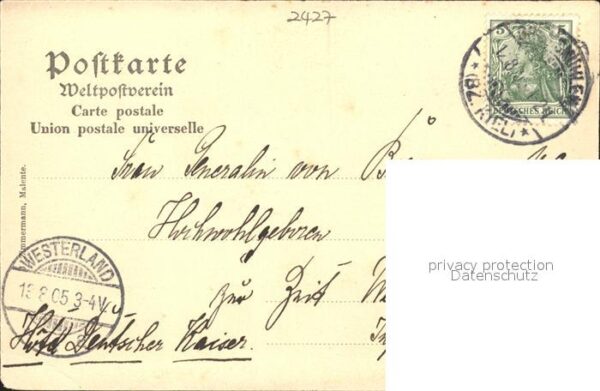 2427
Postkarte
Weltpostverein
Carte postale
Union postale universelle
mmermann, Malente.
5
DEUTSCHES REICH
(BZ. KIEL)
Frau Generalin von
Hochwohlgeboren
zur Zeit
Hotel Deutscher Kaiser.
WESTERLAND
13 8 05 3-4V.
privacy protection
Datenschutz